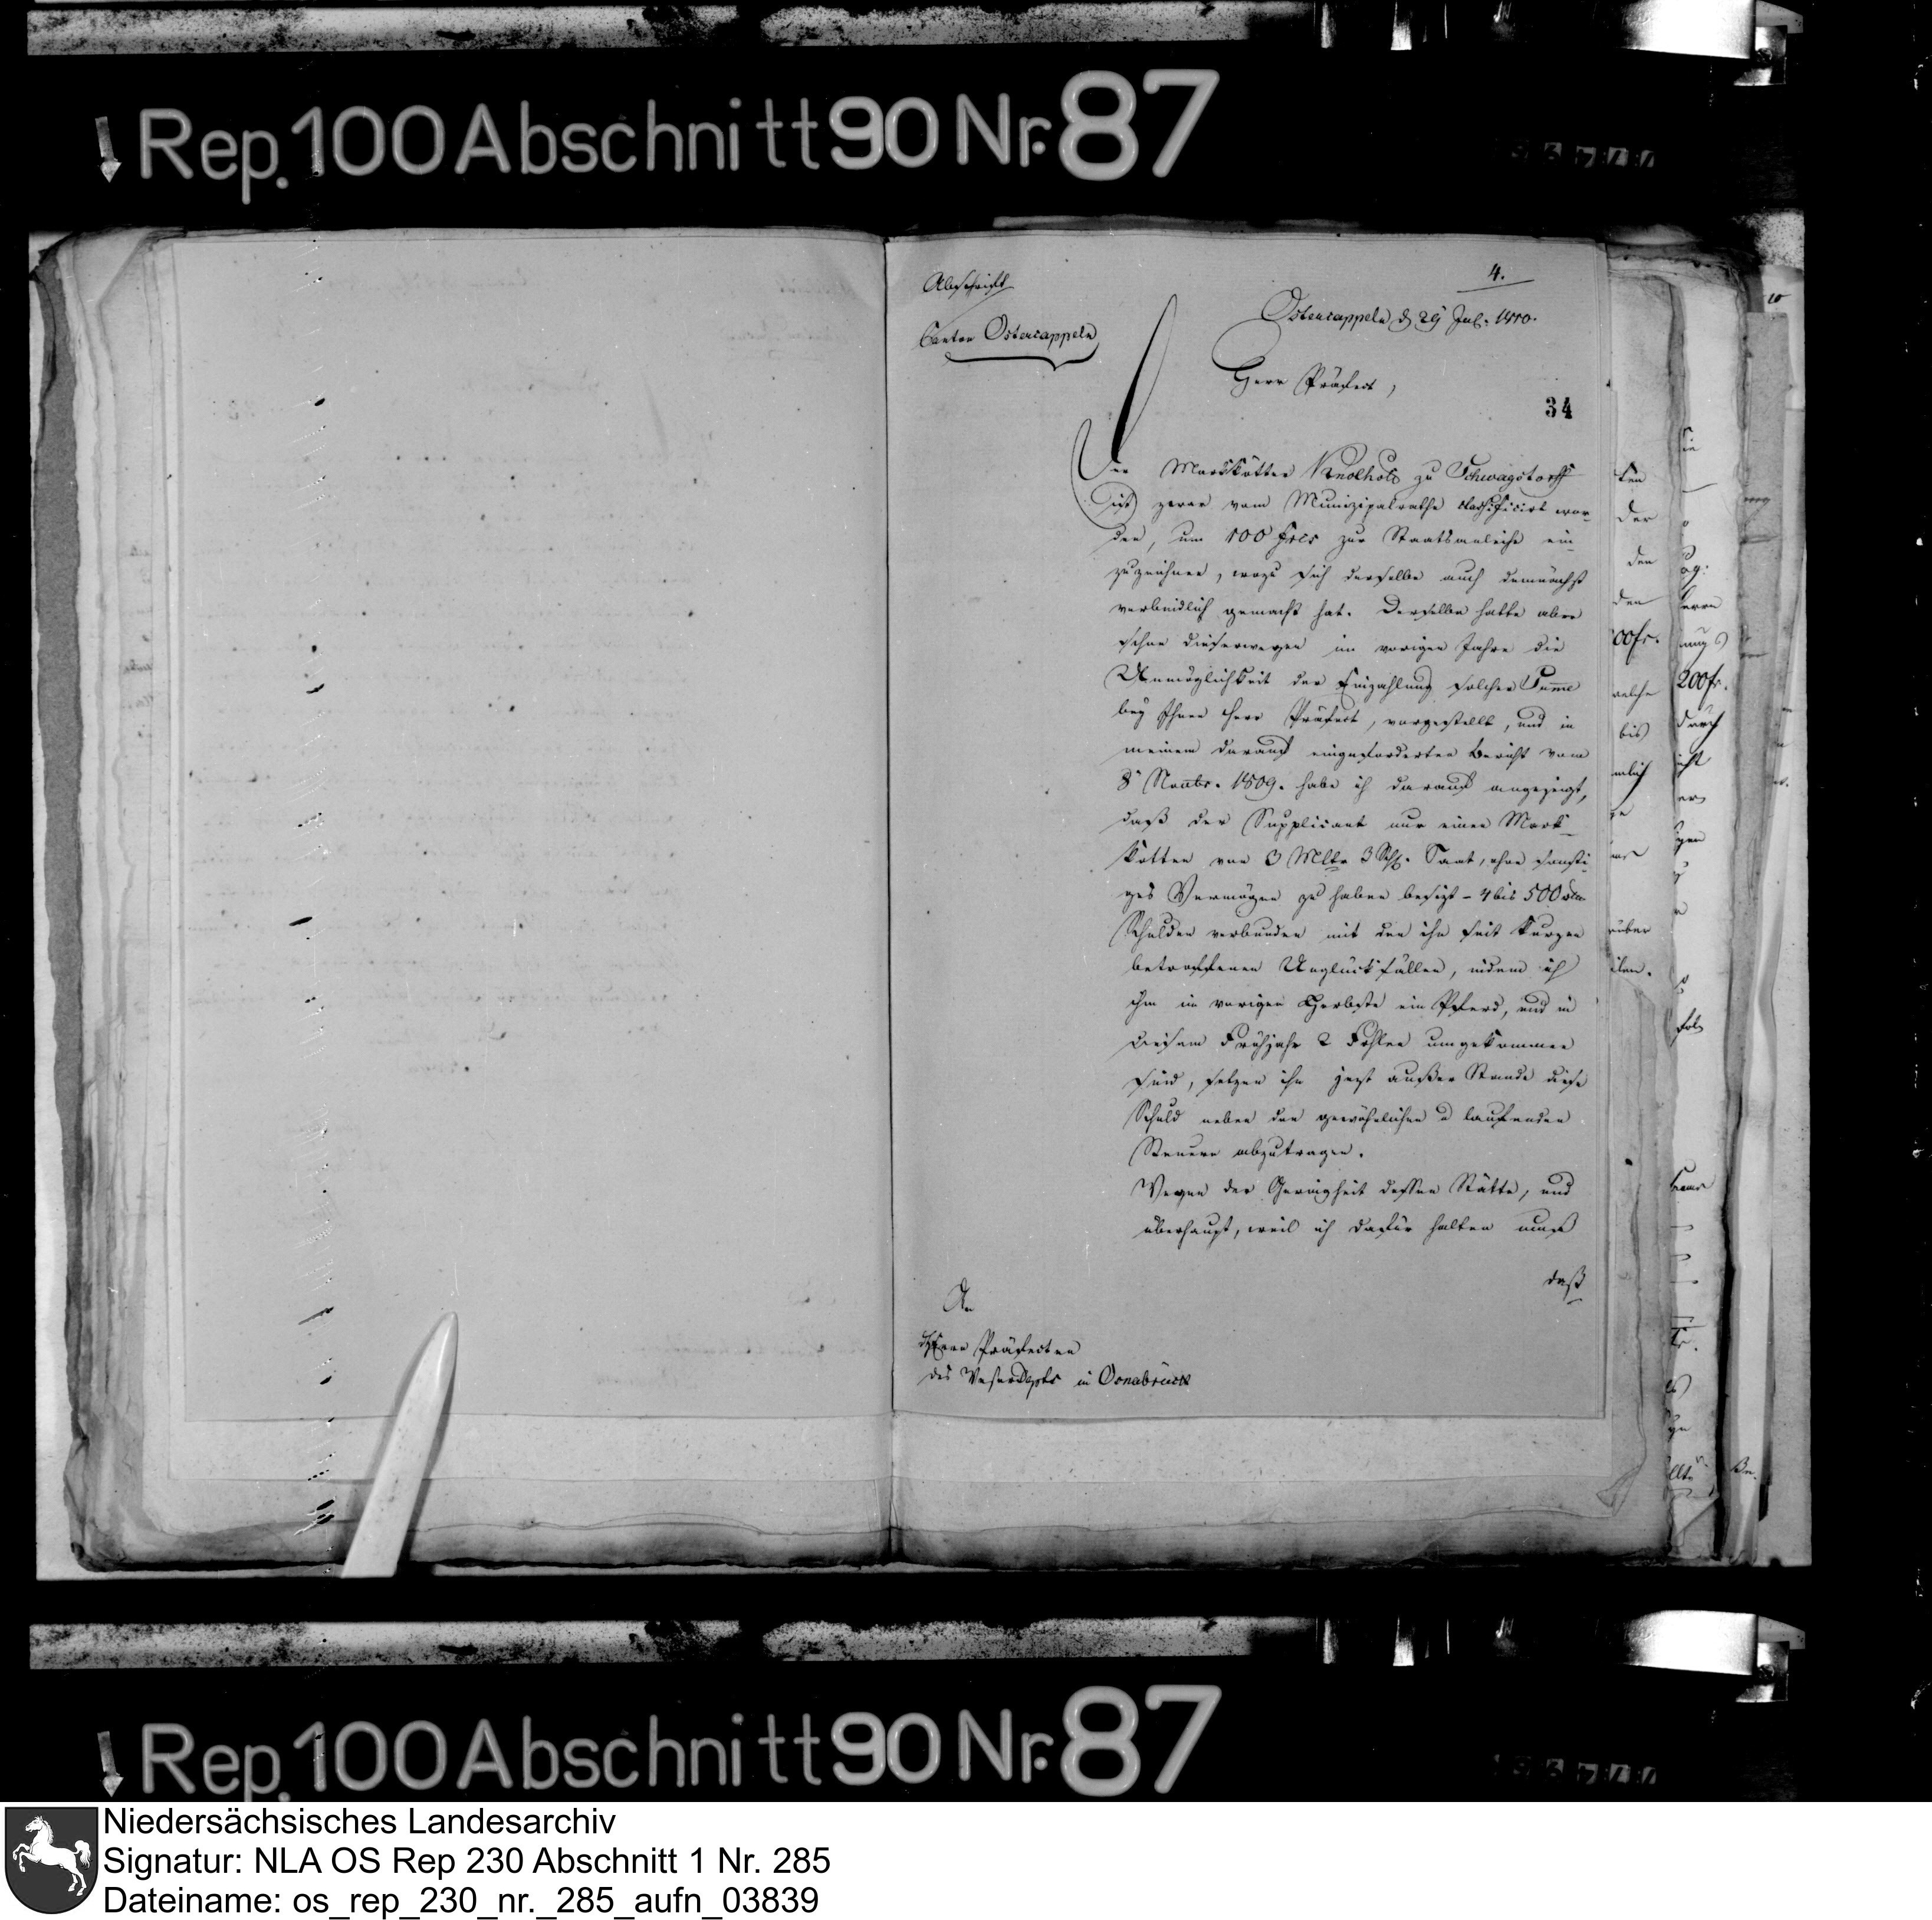 Rep. 100 Abschnitt 90 Nr. 87
4.
Abschrift
Canton Ostercappeln
Ostercappeln d 29 Jul. 1810.
Herr Präfect,
34
Der Markkötter Knolholt zu Schwagstorff
ist zwar vom Munizipalrathe classificirt wor-
den, um 100 frcs zur Staatsanleihe ein
zuzeichnen, wozu sich derselbe auch demnächst
verbindlich gemacht hat. Derselbe hatte aber
schon dieserwegen im vorigen Jahre die
Unmöglichkeit der Einzahlung solcher Summe
bey Ihnen Herr Präfect, vorgestellt, und in
meinem darauf eingeforderten Bericht vom
8t Novbr. 1809. habe ich darauf angezeigt,
daß der Supplicant nur einen Mark-
kotten von 3 Mltr 3 Schfl. Saat, ohne sonsti-
ges Vermögen zu haben besizt - 4 bis 500
Schulden verbunden mit den ihn seit kurzen
betroffenen Unglücksfällen, indem
ihm im vorigen Herbste ein Pferd, und in
diesem Frühjahr 2 Fohlen umgekommen
sind, setzen ihn jezt außer Stande diese
Schuld neben den gewöhnlichen u laufenden
Steuern abzutragen.
Wegen der Geringheit dessen Stätte, und
überhaupt, weil ich dafür halten muß
daß
An
Herrn Präfecten
des Weserdepts in Osnabrück
ken
der
den
den
00fr.
welche
bis
rüber
200fr.
durch
Rep. 100 Abschnitt 90 Nr. 87
Niedersächsisches Landesarchiv
Signatur: NLA OS Rep 230 Abschnitt 1 Nr. 285
Dateiname: os_rep_230_nr._285_aufn_03839